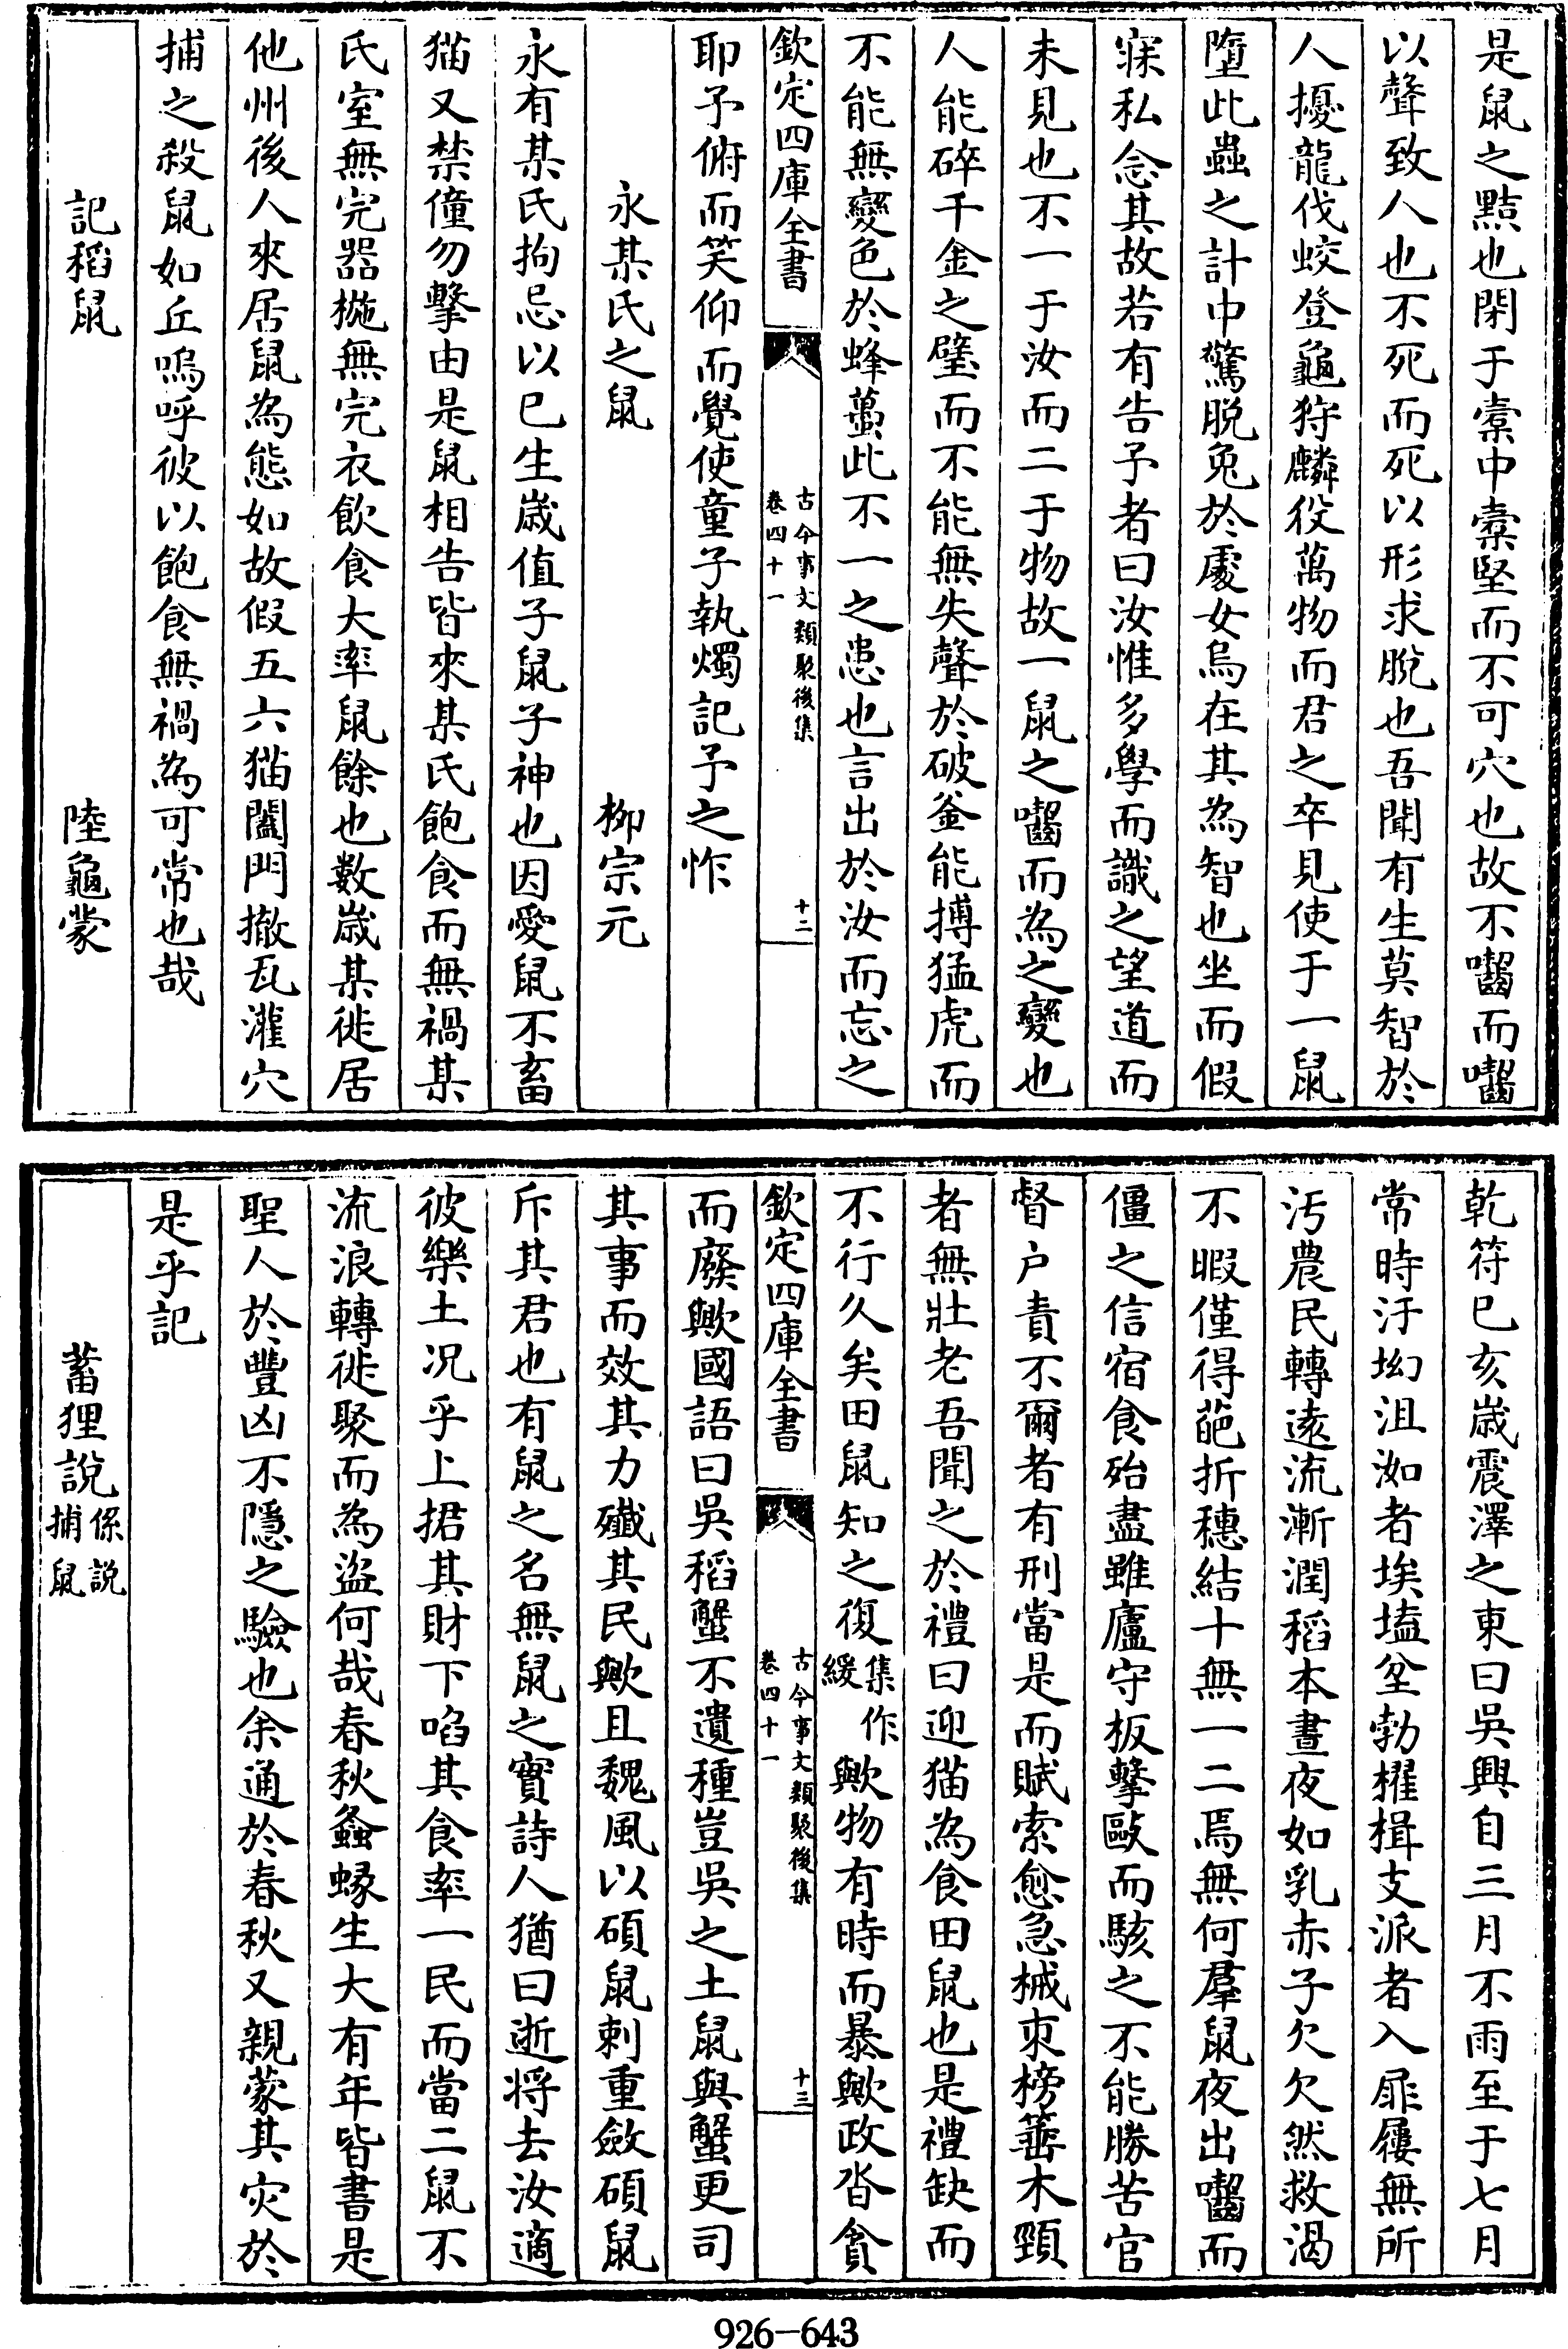 是鼠之黠也閑于橐中橐堅而不可穴也故不囓而囓
以聲致人也不死而死以形求脫也吾聞有生莫智於
人擾龍伐蛟登龜狩麟役萬物而君之卒見使于一鼠
墮此蟲之計中驚脫兔於處女烏在其為智也坐而假
寐私念其故若有告予者曰汝惟多學而識之望道而
未見也不一于汝而二于物故一鼠之囓而為之變也
人能碎千金之璧而不能無失聲於破釜能搏猛虎而
不能無變色於蜂蠆此不一之患也言出於汝而忘之
欽定四庫全書
古今事文類聚後集
卷四十一
十二
耶予俯而笑仰而覺使童子執燭記予之怍
永某氏之鼠 柳宗元
永有某氏拘忌以已生歲值子鼠子神也因愛鼠不畜
猫又禁僮勿擊由是鼠相告皆來某氏飽食而無禍某
氏室無完器椸無完衣飲食大率鼠餘也數歲某徙居
他州後人來居鼠為態如故假五六猫闔門撤瓦灌穴
捕之殺鼠如丘嗚呼彼以飽食無禍為可常也哉
記稻鼠 陸龜蒙
乾符已亥歲震澤之東曰吳興自三月不雨至于七月
常時汙坳沮洳者埃𡏖坌勃櫂楫支派者入扉屨無所
汚農民轉遠流漸潤稻本晝夜如乳赤子欠欠然救渴
不暇僅得葩折穗結十無一二焉無何羣鼠夜出囓而
僵之信宿食殆盡雖廬守板擊毆而駭之不能勝苦官
督户責不爾者有刑當是而賦索愈急械束榜箠木頸
者無壯老吾聞之於禮曰迎猫為食田鼠也是禮缺而
不行久矣田鼠知之復集作緩歟物有時而暴歟政沓貪
欽定四庫全書
古今事文類聚後集
卷四十一
十三
而廢歟國語曰吳稻蟹不遺種豈吳之土鼠與蟹更司
其事而效其力殱其民歟且魏風以碩鼠刺重斂碩鼠
斥其君也有鼠之名無鼠之實詩人猶曰逝將去汝適
彼樂土况乎上捃其財下啗其食率一民而當二鼠不
流浪轉徙聚而為盜何哉春秋螽蝝生大有年皆書是
聖人於豐凶不隱之驗也余通於春秋又親蒙其灾於
是乎記
蓄狸說係説捕鼠
926-643